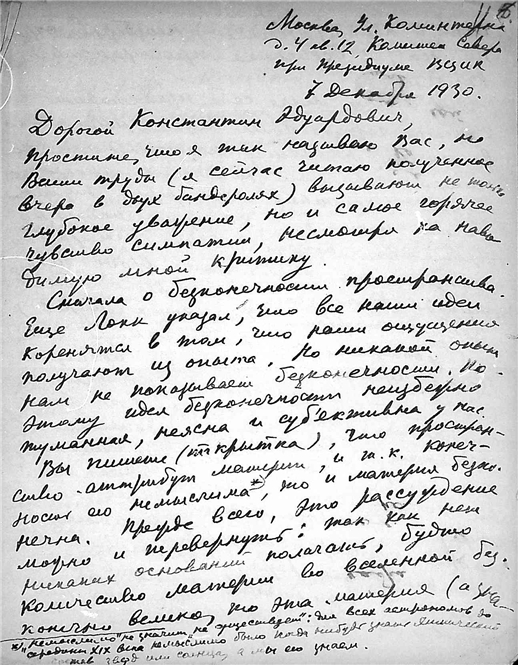 8.
Москва, Ул. Коминтерна
д. 4 кв. 12, Комитет Севера
при Президиуме ВЦИК
7 Декабря 1930.
Дорогой Константин Эдуардович,
простите, что я так называю Вас, но
Ваши труды (я сейчас читаю полученное
вчера в двух бандеролях) вызывают не только
глубокое уважение, но и самое горячее
чувство симпатии, несмотря на наво
димую мной критику.
Сначала о безконечности пространства.
Еще Локк указал, что все наши идеи
коренятся в том, что наши ощущения
получают из опыта. Но никакой опыт
нам не показывает безконечности. По-
этому идея безконечности неизбежно
туманная, неясна и субъективна у нас.
Вы пишете (открытка), что простран-
ство - аттрибут материи, и т.к. конеч-
ность его немыслима*), то и материя безко-
нечна. Прежде всего, это рассуждение
можно и перевернуть: так как нет
никаких оснований полагать, будто
количество материи во вселенной без-
конечно велико, то эта материя (а зна-
*) "немыслимо" не значит "не существует": для всех астрономов до
середины XIX века немыслимо было когда нибудь знать химический
состав звезд или солнца, а мы его знаем.